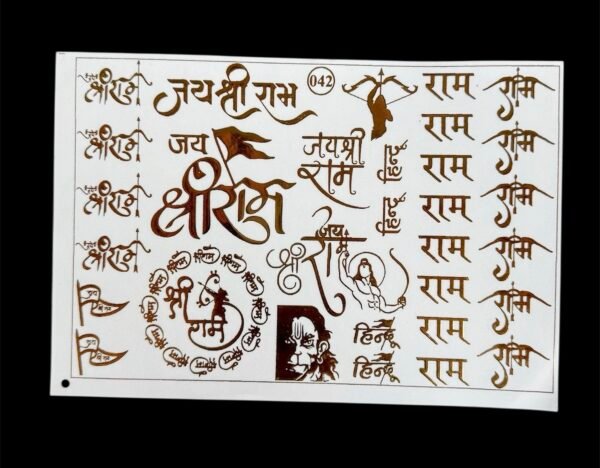 श्रीराम
श्रीराम
श्रीराम
श्रीराम
जय
जय
जय श्री राम
042
जय
श्रीराम
जय श्री
राम
हिन्दू
हिन्दू
जय
श्री राम
श्री
राम
श्रीराम
श्रीराम
श्रीराम
श्रीराम
श्रीराम
श्रीराम
श्रीराम
श्रीराम
श्रीराम
श्रीराम
श्रीराम
श्रीराम
हिन्दू
हिन्दू
राम
राम
राम
राम
राम
राम
राम
राम
राम
राम
राम
राम
राम
राम